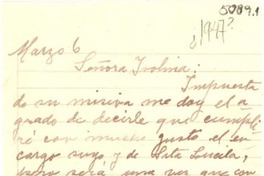 5089.1
¿1947?
Marzo 6
Señora Isolina:
Impuesta
de su misiva me doy el a
grado de decirle que cumpli
ré con mucho gusto el en
cargo suyo y de Sita Lucila,
pero será una vez que con